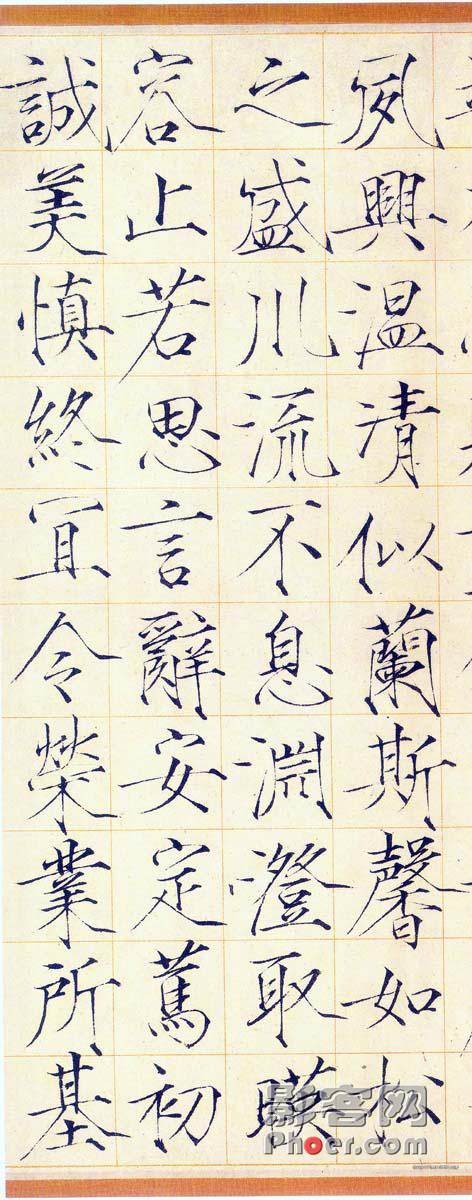 夙興温清似蘭斯馨如松
之盛川流不息淵澄取暎
容止若思言辭安定篤初
誠美慎終冝令榮業所基
影客网
Phoer.com